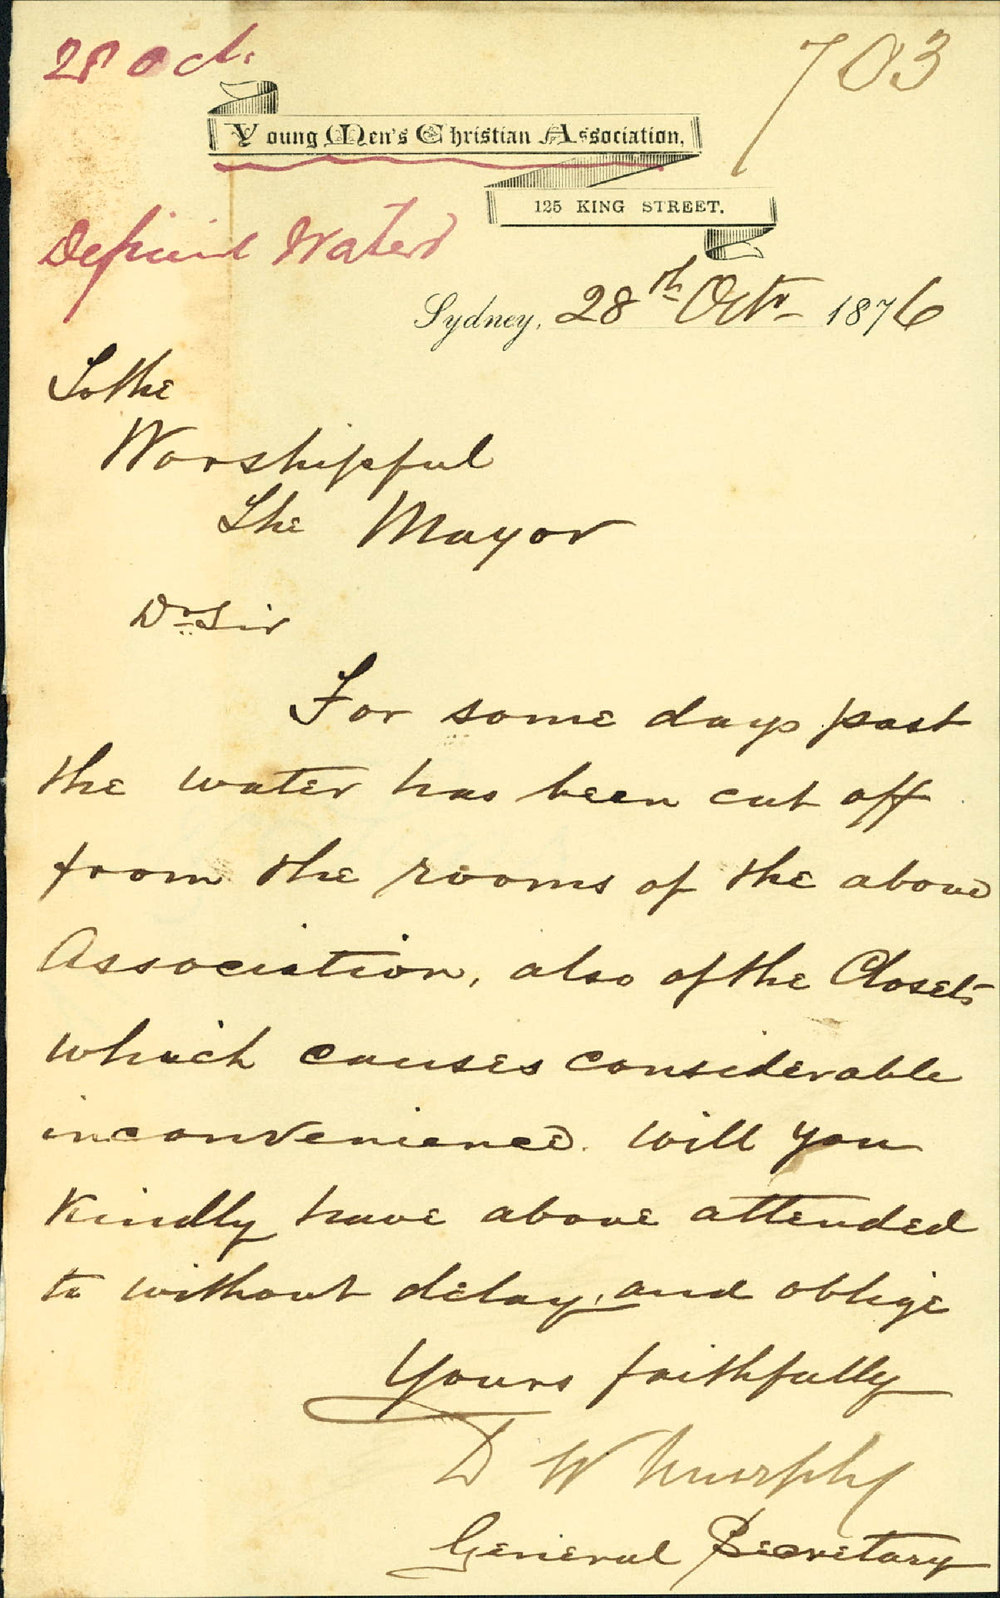 28 Oct.
703
Young Men's Christian Association,
125 KING STREET.
Deficient Water
Sydney, 28th Octr 1876
To the
Worshipful
The Mayor
Dr Sir
For some days past
the water has been cut off
from the rooms of the above
Association, also of the Closets
which causes considerable
inconvenience. Will you
Kindly have above attended
to without delay, and oblige
Yours faithfully
D W Murphy
General Secretary